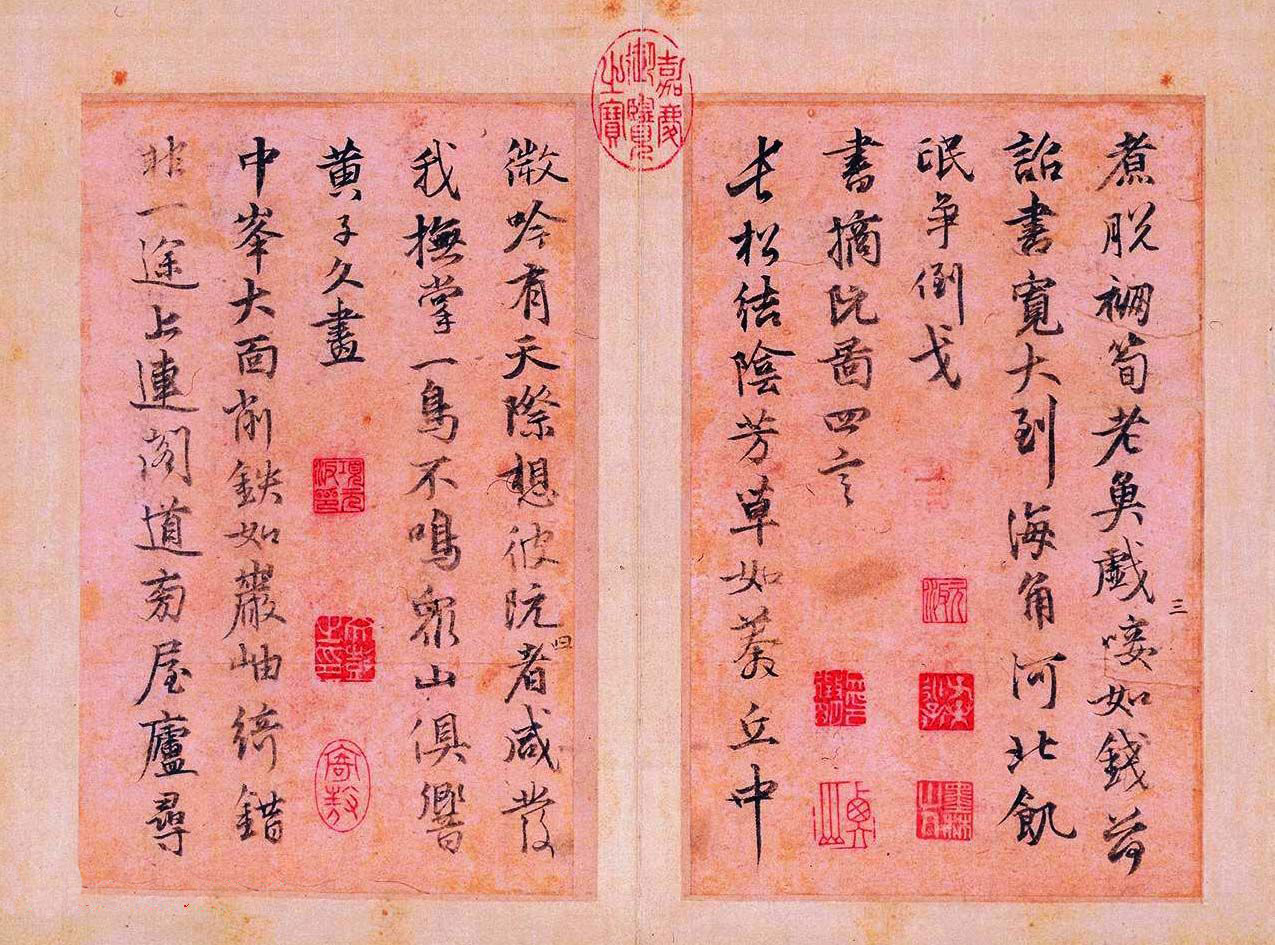 煮脱禂筍老魚戲唼如錢荷
三
詔書寬大到海角河北飢
氓争倒戈
書摘阮啚四言
長松結陰芳草如蓁丘中
嘉慶御覽之寶
微吟有天際想彼阮者咸發
四
我撫掌一鳥不鳴衆山俱響
黄子久畫
中峯大面削鉄如巖岫綺錯
非一途上連閣道旁屋廬尋
項元汴印
墨林山人